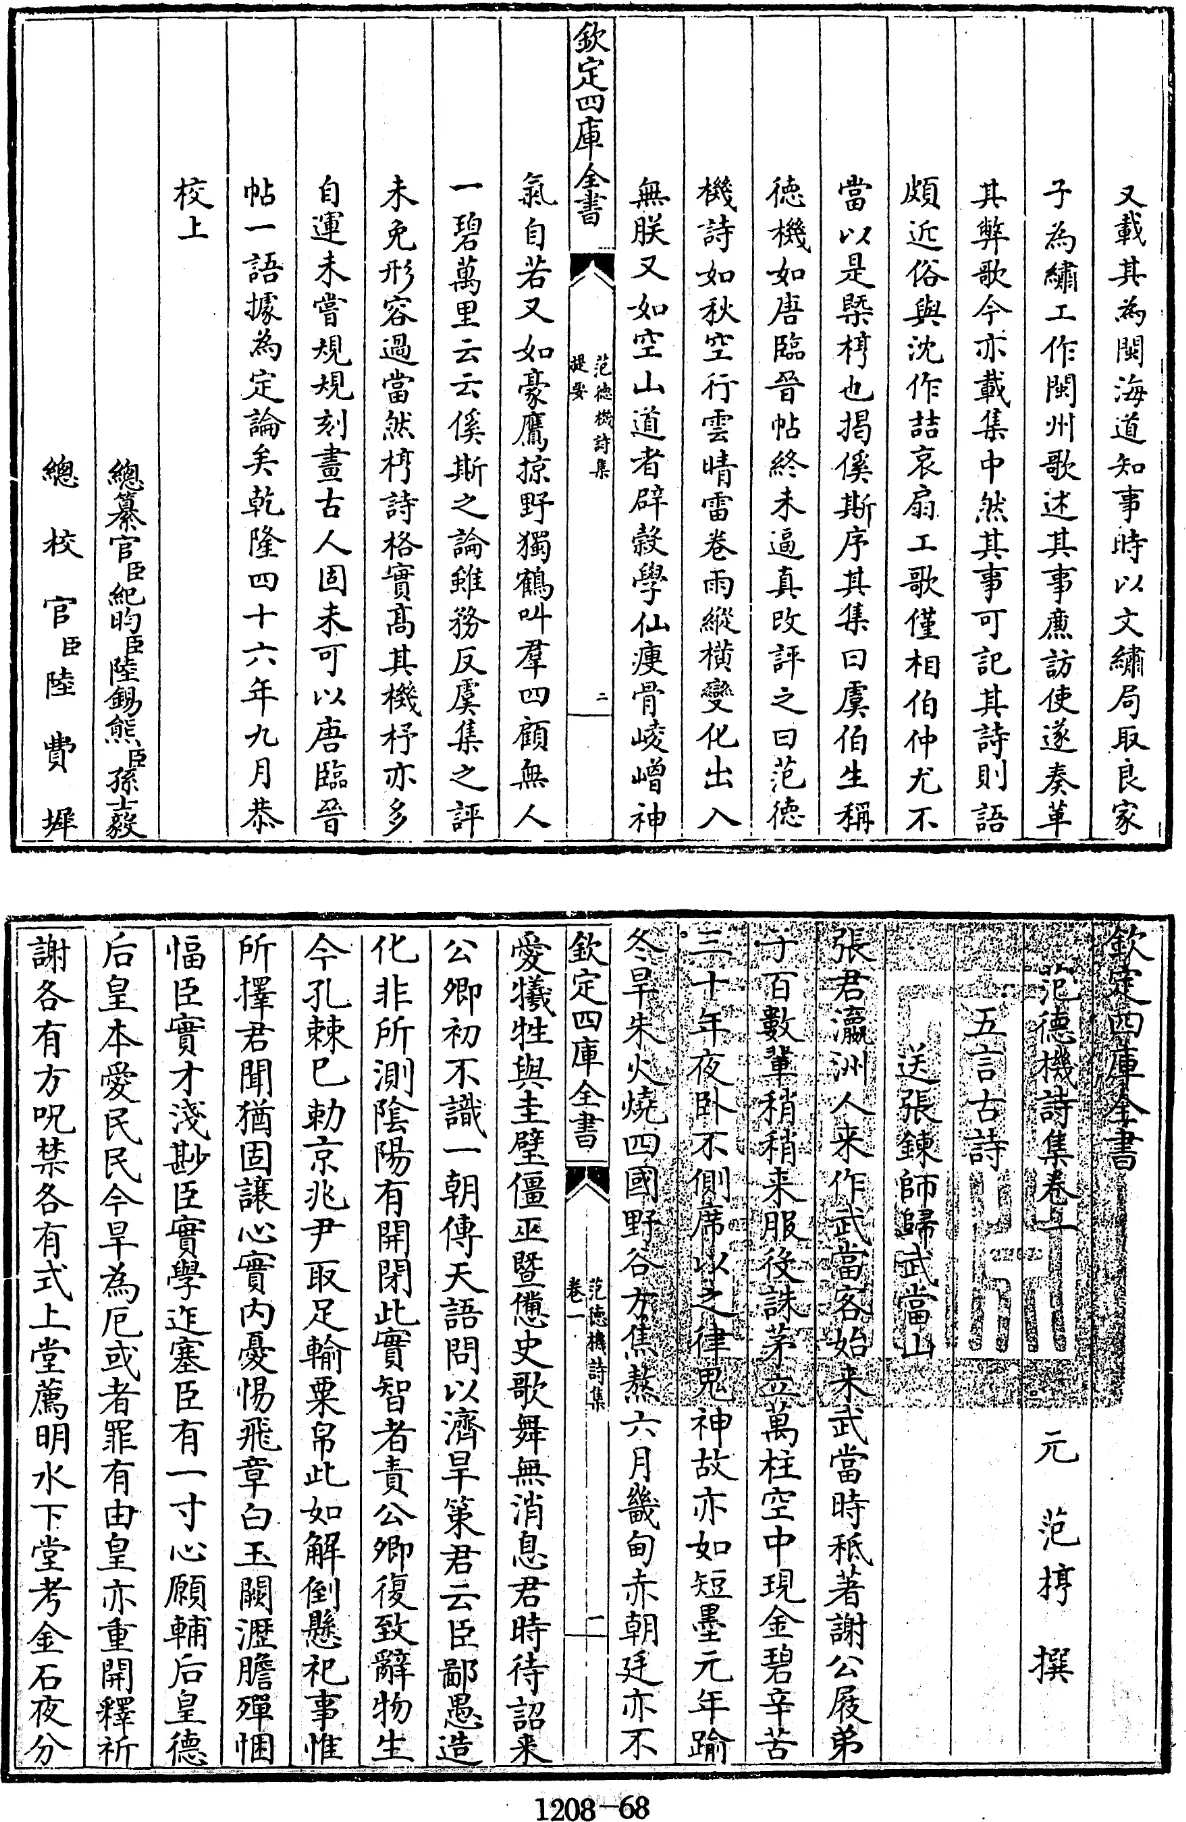 又載其為閩海道知事時以文繡局取良家
子為繡工作閩州歌述其事廉訪使遂奏革
其弊歌今亦載集中然其事可記其詩則語
頗近俗與沈作喆哀扇工歌僅相伯仲尤不
當以是槩梈也揭傒斯序其集曰虞伯生稱
德機如唐臨晉帖終未逼真改評之曰范德
機詩如秋空行雲晴雷卷雨縱橫變化出入
無朕又如空山道者辟穀學仙瘦骨崚嶒神
欽定四庫全書
范德機詩集
提要
二
氣自若又如豪鷹掠野獨鶴叫羣四顧無人
一碧萬里云云傒斯之論雖務反虞集之評
未免形容過當然梈詩格實高其機杼亦多
自運未嘗規規刻畫古人固未可以唐臨晉
帖一語據為定論矣乾隆四十六年九月恭
校上
總纂官臣紀昀臣陸錫熊臣孫士毅
總校官臣陸費墀
欽定四庫全書
范德機詩集卷一
元 范梈 撰
五言古詩
送張鍊師歸武當山
張君瀛洲人来作武當客始来武當時秖著謝公屐弟
子百數輩稍稍来服役誅茅立萬柱空中現金碧辛苦
三十年夜卧不側席以之律鬼神故亦如短墨元年踰
冬旱朱火燒四國野谷方焦熬六月畿甸赤朝廷亦不
欽定四庫全書
范德機詩集
卷一
一
愛犧牲與圭璧僵巫暨儓史歌舞無消息君時待詔来
公卿初不識一朝傳天語問以濟旱策君云臣鄙愚造
化非所測陰陽有開閉此實智者責公卿復致辭物生
今孔棘已勅京兆尹取足輸粟帛此如解倒懸祀事惟
所擇君聞猶固讓心實内憂惕飛章白玉闕瀝膽殫悃
愊臣實才淺尠臣實學迮塞臣有一寸心願輔后皇德
后皇本愛民民今旱為厄或者罪有由皇亦重開釋祈
謝各有方呪禁各有式上堂薦明水下堂考金石夜分
1208-68